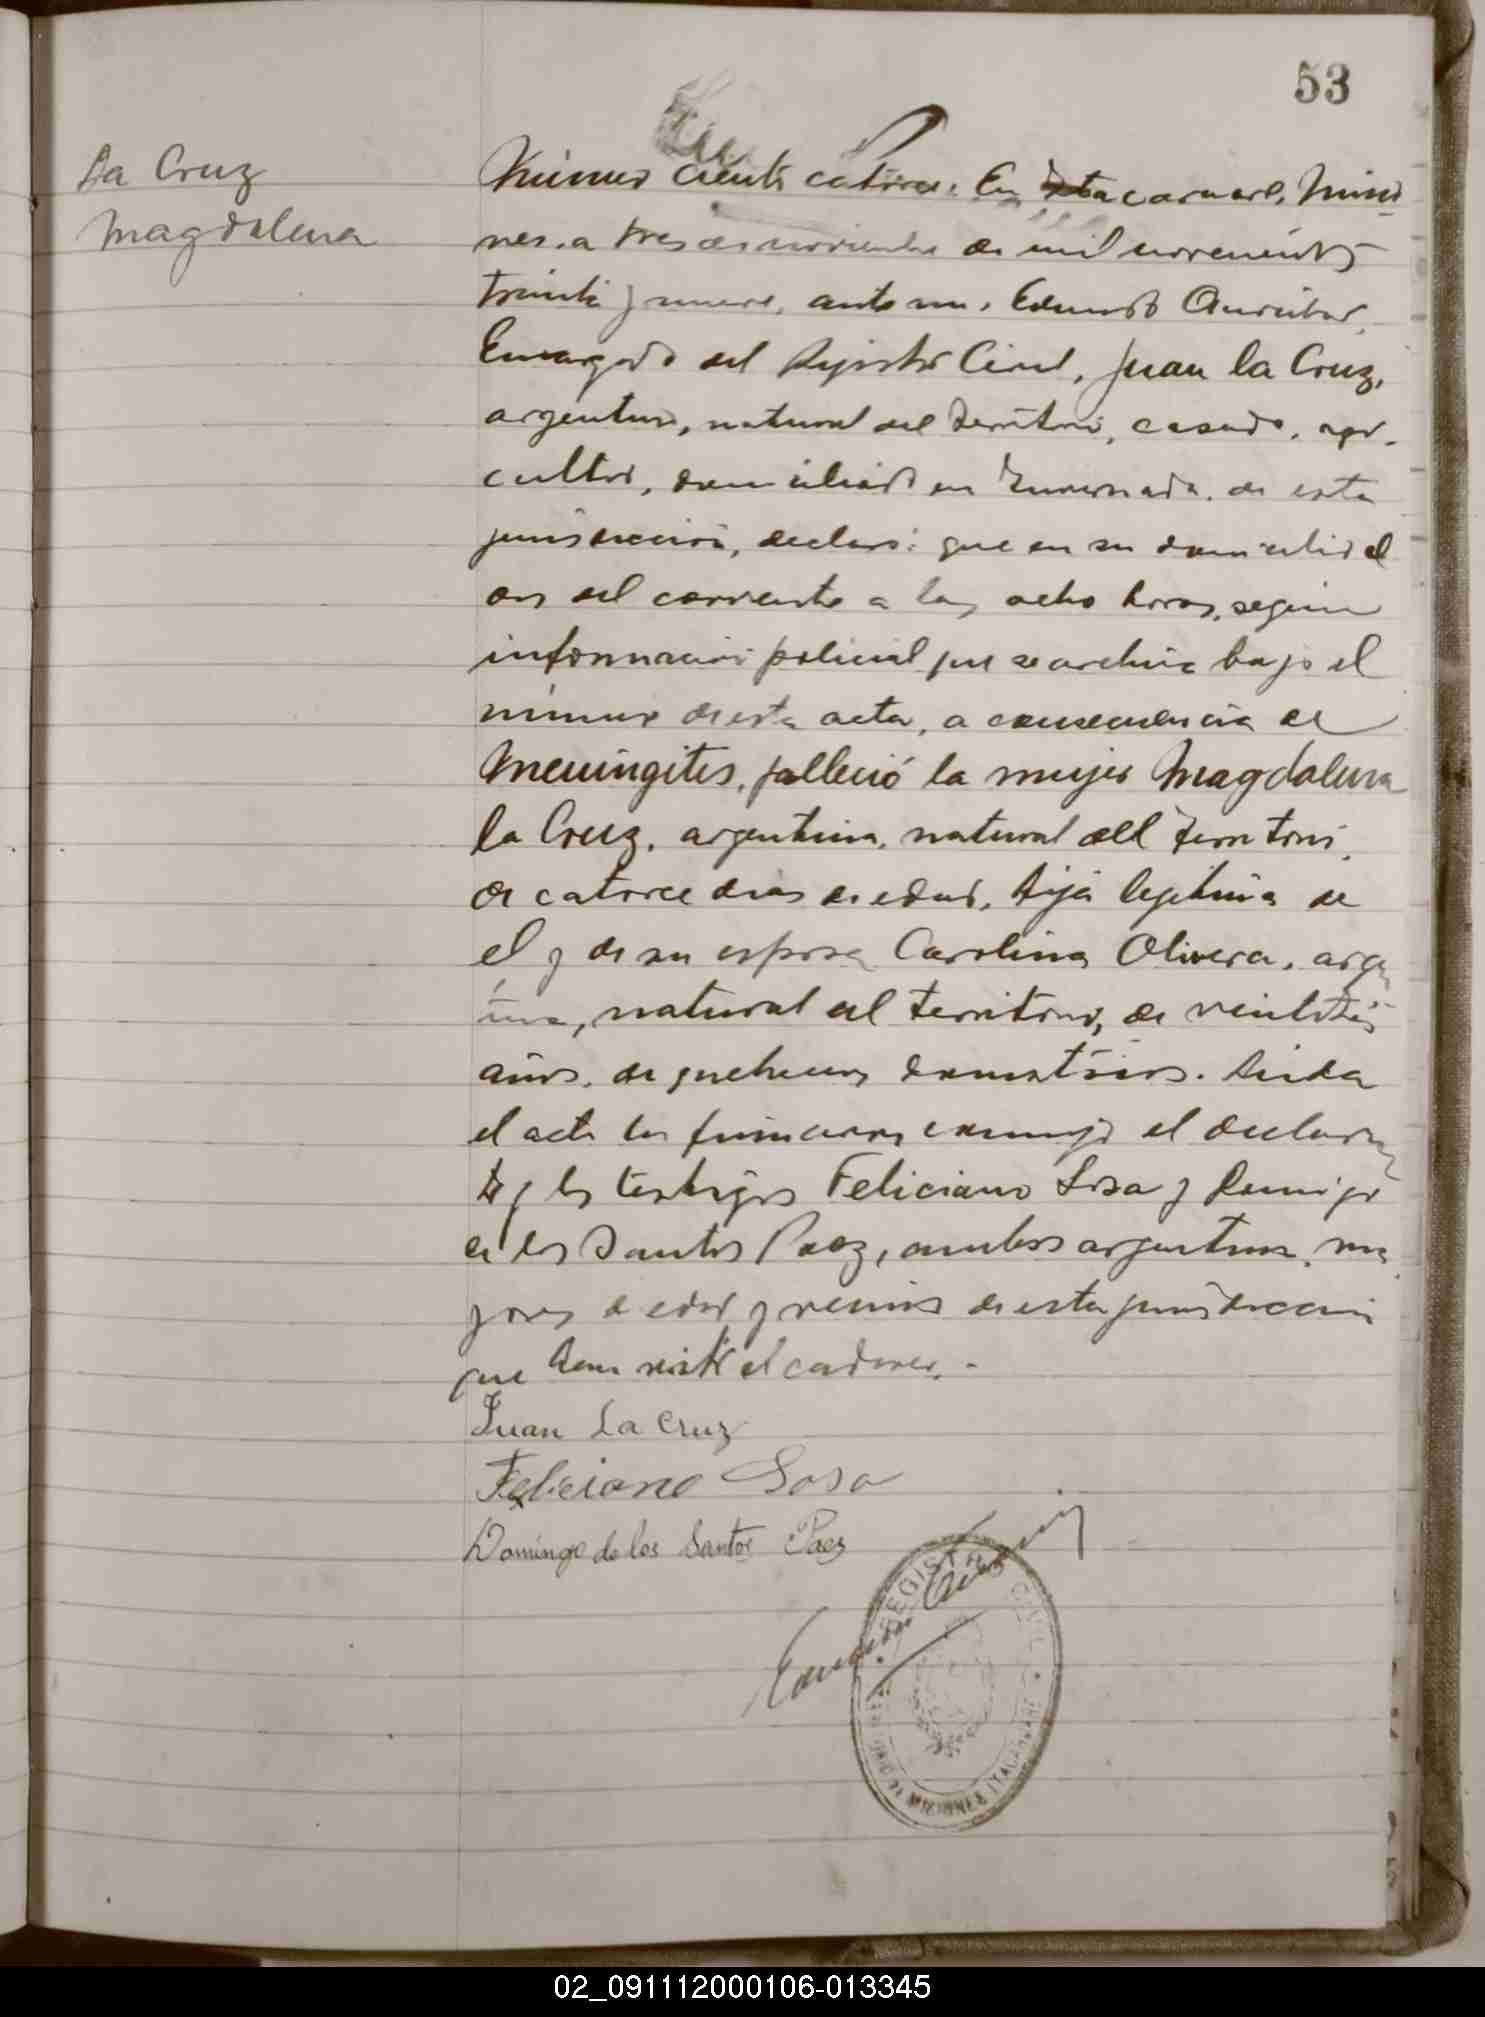 53
La Cruz
Magdalena
Número ciento catorce. En Itacaruaré, Misio
nes, a tres de noviembre de mil novecientos
treinta y nueve, ante mi, Edmundo
Encargado del Registro Civil, Juan la Cruz,
argentino, natural del territorio, casado, agri-
cultor, domiciliado en Invernada, de esta
jurisdicción, declaró: que en su domicilio el
dos del corriente a las ocho horas, según
información policial que se archiva bajo el
número de esta acta, a consecuencia de
Meningites, falleció la mujer Magdalena
la Cruz, argentina, natural del territorio,
de catorce dias de edad, hija legitima de
el y de su esposa Carolina Olivera, argen
tina, natural del territorio, de
años, de quehaceres domésticos. Leida
el acta la firmaron conmigo el declaran
te y los testigos Feliciano Sosa y Domingo
de los Santos Paez, ambos argentinos, ma
yores de edad y vecinos de esta jurisdicción
que han visto el cadaver.-
Juan La Cruz
Feliciano Sosa
Domingo de los Santos Paez
REGISTRO CIVIL
TERRITORIO DE MISIONES ITACARUARÉ
02_091112000106-013345